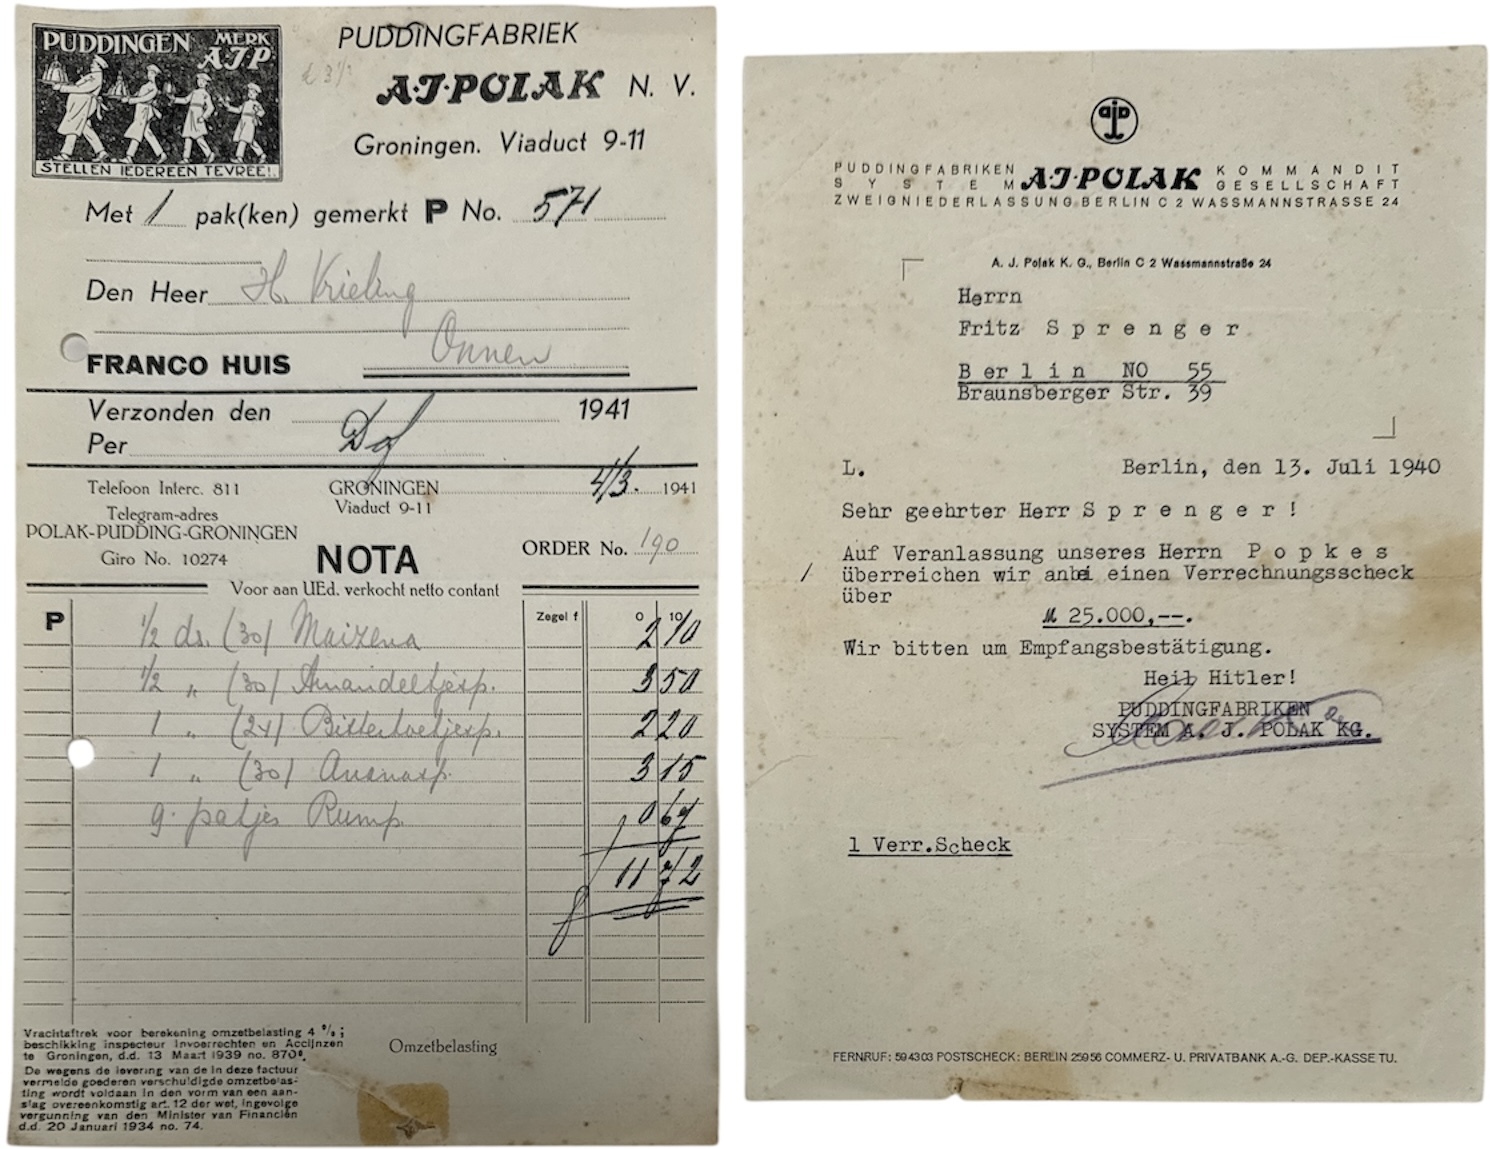 PUDDINGEN MERK
A.J.P.
STELLEN IEDEREEN TEVREE!.
PUDDINGFABRIEK
A·J·POLAK N. V.
Groningen. Viaduct 9-11
Met 1 pak(ken) gemerkt P No. 571
Den Heer H. Krieling
Onnen
FRANCO HUIS
Verzonden den 1941
Per
Telefoon Interc. 811
Telegram-adres
POLAK-PUDDING-GRONINGEN
Giro No. 10274
GRONINGEN 4/3. 1941
Viaduct 9-11
NOTA
ORDER No. 190
Voor aan UEd. verkocht netto contant
P
Zegel f 0 10
1/2 ds. (30) Maizena 2 70
1/2 " (30) Amandeltjesp. 3 50
1 " (24) Bitterkoetjesp. 2 20
1 " (30) Ananasp. 3 15
9 patjes Rump. 0 67
11 72
Vrachtaftrek voor berekening omzetbelasting 4 %;
beschikking inspecteur Invoerrechten en Accijnzen
te Groningen, d.d. 13 Maart 1939 no. 870.
De wegens de levering van de in deze factuur
vermelde goederen verschuldigde omzetbelas-
ting wordt voldaan in den vorm van een aan-
slag overeenkomstig art. 12 der wet, ingevolge
vergunning van den Minister van Financiën
d.d. 20 Januari 1934 no. 74.
Omzetbelasting
ajp
PUDDINGFABRIKEN
SYSTEM
A·J·POLAK
KOMMANDIT
GESELLSCHAFT
ZWEIGNIEDERLASSUNG BERLIN C 2 WASSMANNSTRASSE 24
A. J. Polak K. G., Berlin C 2 Wassmannstraße 24
Herrn
Fritz S p r e n g e r
B e r l i n NO 55
Braunsberger Str. 39
L. Berlin, den 13. Juli 1940
Sehr geehrter Herr S p r e n g e r !
Auf Veranlassung unseres Herrn P o p k e s
/ überreichen wir anbei einen Verrechnungsscheck
über
M 25.000,--.
Wir bitten um Empfangsbestätigung.
Heil Hitler!
PUDDINGFABRIKEN
SYSTEM A. J. POLAK KG.
1 Verr.Scheck
FERNRUF: 594303 POSTSCHECK: BERLIN 25956 COMMERZ- U. PRIVATBANK A.-G. DEP.-KASSE TU.